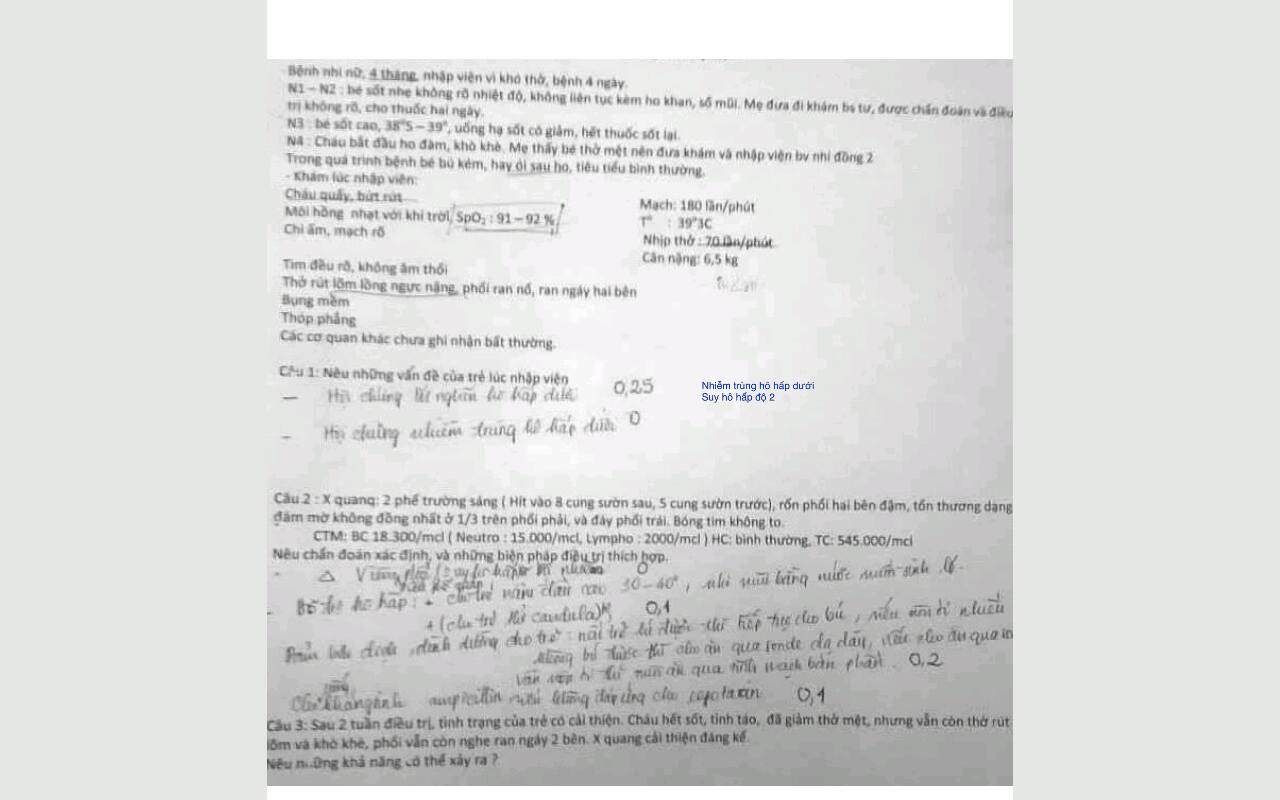 Bệnh nhi nữ, 4 tháng, nhập viện vì khó thở, bệnh 4 ngày.
N1 – N2 : bé sốt nhẹ không rõ nhiệt độ, không liên tục kèm ho khan, sổ mũi. Mẹ đưa đi khám bs tư, được chẩn đoán và điều
trị không rõ, cho thuốc hai ngày.
N3 : bé sốt cao, 38°5 – 39°, uống hạ sốt có giảm, hết thuốc sốt lại.
N4 : Cháu bắt đầu ho đàm, khò khè. Mẹ thấy bé thở mệt nên đưa khám và nhập viện bv nhi đồng 2
Trong quá trình bệnh bé bú kém, hay ói sau ho, tiêu tiểu bình thường.
- Khám lúc nhập viện:
Cháu quấy, bứt rứt
Mạch: 180 lần/phút
Môi hồng nhạt với khí trời, SpO₂ : 91 – 92 %
T° : 39°3C
Chi ấm, mạch rõ
Nhịp thở : 70 lần/phút
Cân nặng: 6,5 kg
Tim đều rõ, không âm thổi
Thở rút lõm lồng ngực nặng, phổi ran nổ, ran ngáy hai bên
Bụng mềm
Thóp phẳng
Các cơ quan khác chưa ghi nhận bất thường.
Câu 1: Nêu những vấn đề của trẻ lúc nhập viện
- Hội chứng tắc nghẽn hô hấp dưới 0,25
Nhiễm trùng hô hấp dưới
Suy hô hấp độ 2
- Hội chứng nhiễm trùng hô hấp dưới 0
Câu 2 : X quang: 2 phế trường sáng ( Hít vào 8 cung sườn sau, 5 cung sườn trước), rốn phổi hai bên đậm, tổn thương dạng
đám mờ không đồng nhất ở 1/3 trên phổi phải, và đáy phổi trái. Bóng tim không to.
CTM: BC 18.300/mcl ( Neutro : 15.000/mcl, Lympho : 2000/mcl ) HC: bình thường, TC: 545.000/mcl
Nêu chẩn đoán xác định, và những biện pháp điều trị thích hợp.
- Δ Viêm phổi 0
- Hỗ trợ hô hấp : + cho trẻ nằm đầu cao 30–40°, nhỏ mũi bằng nước muối sinh lý.
+ (cho trẻ thở canula) 0,1
dinh dưỡng cho trẻ : nếu trẻ bú được thì tiếp tục cho bú, nếu nôn ói nhiều
không bú được thì cho ăn qua sonde dạ dày, nếu cho ăn qua
vẫn nôn ói thì nuôi ăn qua tĩnh mạch bán phần. 0,2
ampicillin nếu không đáp ứng cho cefotaxim 0,1
Câu 3: Sau 2 tuần điều trị, tình trạng của trẻ có cải thiện. Cháu hết sốt, tỉnh táo, đã giảm thở mệt, nhưng vẫn còn thở rút
lõm và khò khè, phổi vẫn còn nghe ran ngáy 2 bên. X quang cải thiện đáng kể.
Nêu những khả năng có thể xảy ra ?